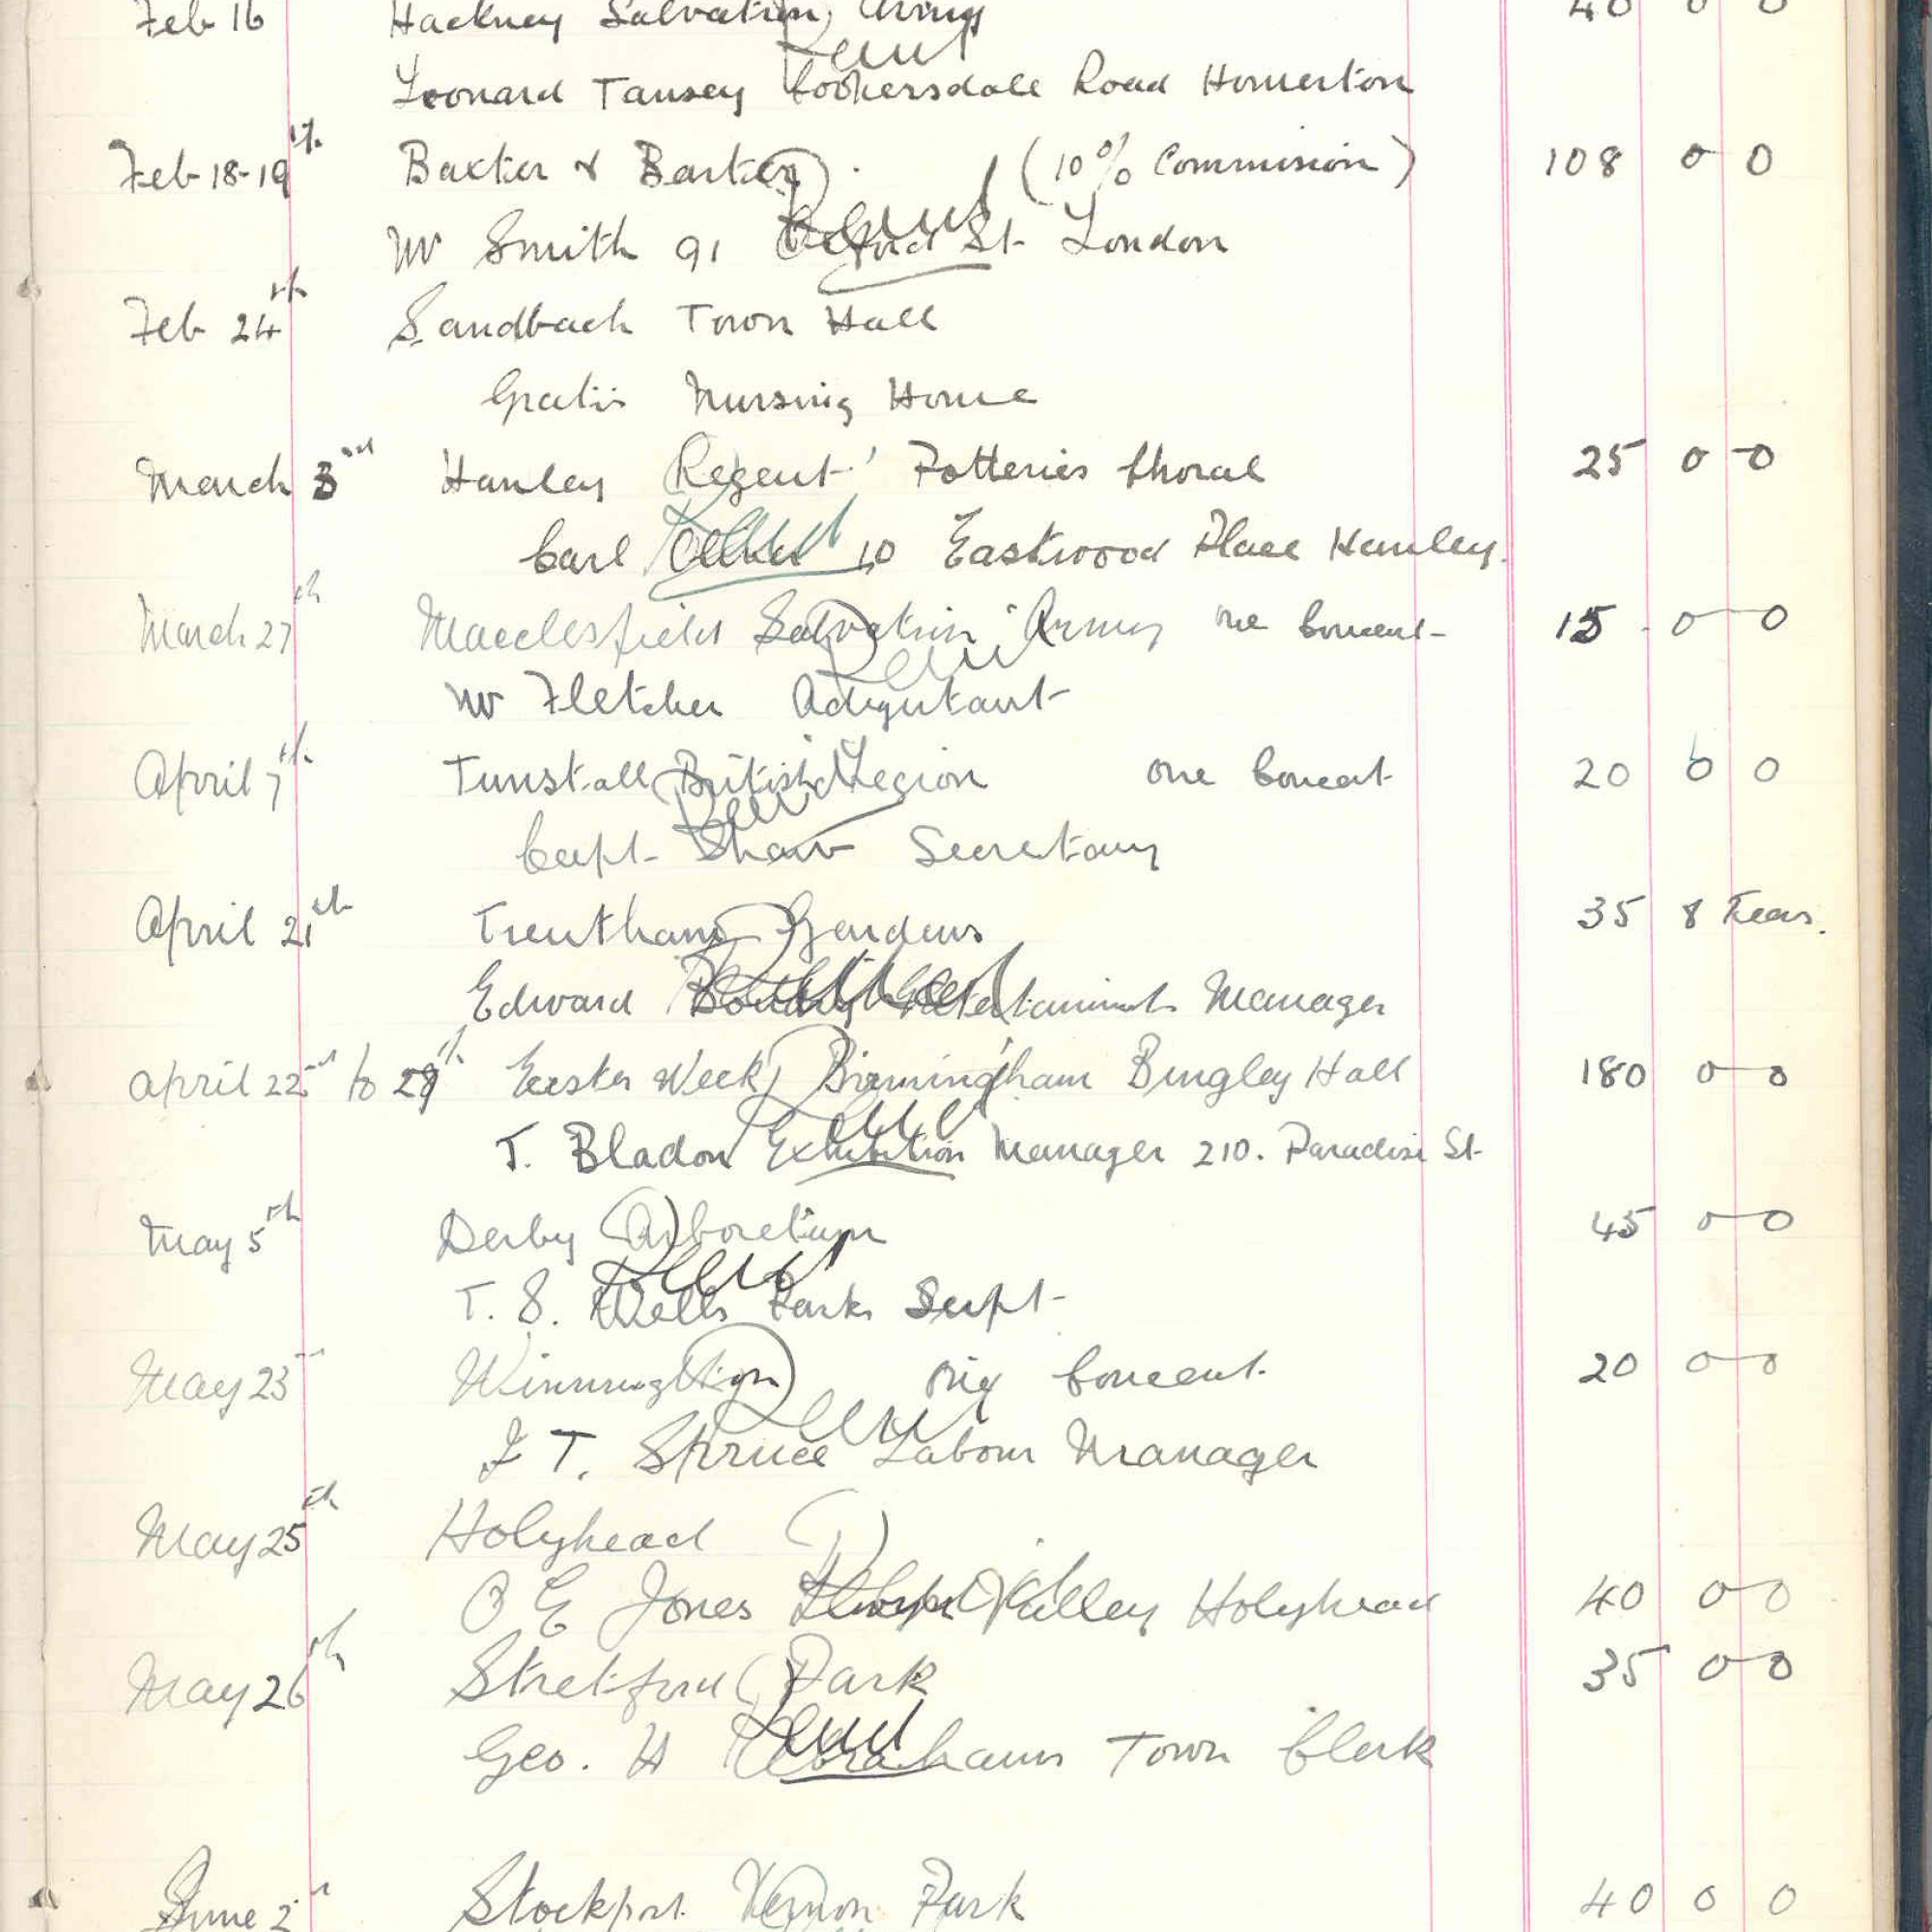 Feb 16 Hackney Salvation Army 40 0 0
Recd
Leonard Tansey Cookersdale Road Homerton
Feb 18-19th Baxter & Barter (10% Commision) 108 0 0
Recd
W Smith 91 Oxford St London
Feb 24th Sandbach Town Hall
Gratis Nursing Home
March 3rd Hanley Regent Potteries Choral 25 0 0
Recd
Carl Oliver 10 Eastwood Place Hanley.
March 27th Macclesfield Salvation Army one Concert 15 0 0
Recd
W Fletcher Adjutant
April 7th Tunstall British Legion one Concert 20 0 0
Recd
Capt Shaw Secretary
April 21th Trentham Gardens 35 8 Teas.
Recd
Edward Entertainments Manager
April 22nd to 29th Easter Week Birmingham Bingley Hall 180 0 0
Recd
T. Bladon Exhibition Manager 210. Paradise St
May 5th Derby Arboretum 45 0 0
Recd
T. S. Wells Parks Supt
May 23rd Winnington one Concert. 20 0 0
Recd
J T. Spruce Labour Manager
May 25th Holyhead
Recd
O E Jones Valley Holyhead 40 0 0
May 26th Stretford Park 35 0 0
Recd
Geo. H Abrahams Town Clerk
June 2nd Stockport Vernon Park 40 0 0